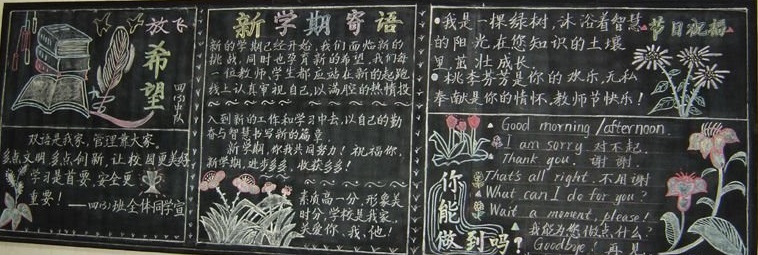 放飞
希望
四(3)中队
双语是我家,管理靠大家。
多点文明多点创新,让校园更美好
学习是首要,安全更
重要!
——四(3)班全体同学宣
新学期寄语
新的学期已经开始,我们面临新的
挑战,同时也孕育新的希望,我们每
一位教师、学生都应站在新的起跑
线上认真审视自己,以满腔的热情投
入到新的工作和学习中去,以自己的勤
奋与智慧书写新的篇章。
新学期,你我共同努力!祝福你,
新学期,进步多多,收获多多!
素质高一分,形象美
时分,学校是我家,
关爱你、我、他!
节日祝福
我是一棵绿树,沐浴着智慧
的阳光,在您知识的土壤
里茁壮成长。
桃李芬芳是你的欢乐,无私
奉献是你的情怀,教师节快乐!
你能做到吗?
Good morning/afternoon.
I am sorry 对不起.
Thank you. 谢谢.
That's all right. 不用谢
What can I do for you?
Wait a moment, please!
我能为您做点什么?
Goodbye! 再见